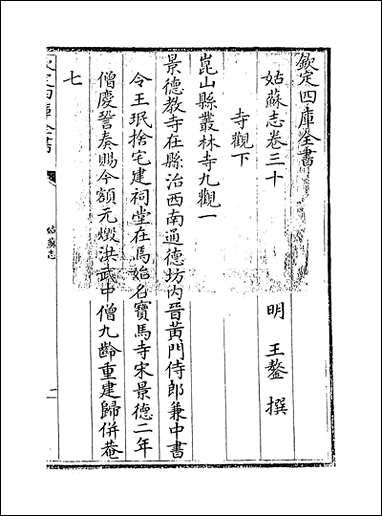 欽定四庫全書
姑蘇志卷三十
明 王鏊 撰
寺觀下
崑山縣叢林寺九觀一
景德教寺在縣治西南通德坊内晉黃門侍郎兼中書
令王珉捨宅建祠堂在馬始名寶馬寺宋景德二年
僧慶誾奏賜今額元燬洪武中僧九齡重建歸併菴
七
欽定四庫全書
姑蘇志